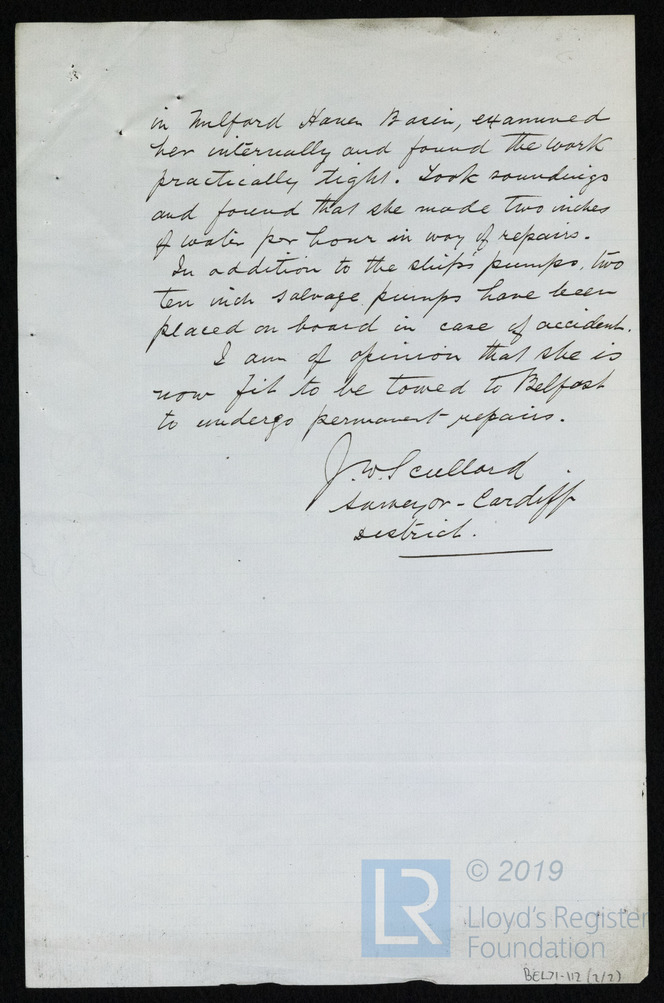 in Milford Haven Basin, examined
her internally and found the work
practically tight. Took soundings
and found that she made two inches
of water per hour in way of repairs.
In addition to the ship's pumps, two
ten inch salvage pumps have been
placed on board in case of accident.
I am of opinion that she is
now fit to be towed to Belfast
to undergo permanent repairs.
J. W. Scullard
Surveyor - Cardiff
District.
LR
© 2019
Lloyd's Register
Foundation
BEL71-112 (2/2)